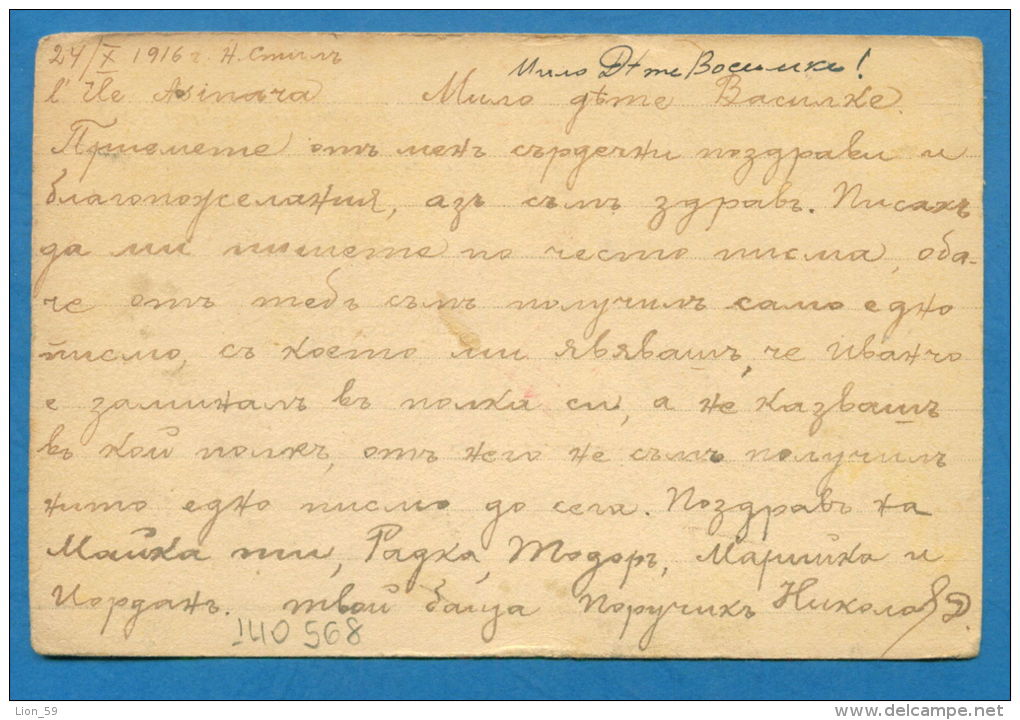 24/X 1916 г. Н. Стилъ
Мило Дѣте Василке!
l'Ile Asinara Мило дѣте Василке.
Приемете отъ менъ сърдечни поздрави и
благопожелания, азъ съмъ здравъ. Писахъ
да ми пишете по често писма, оба-
че отъ тебъ съмъ получилъ само едно
писмо, съ което ми явявашъ, че Иванчо
е заминалъ въ полка си, а не казвашъ
въ кой полкъ, отъ него не съмъ получилъ
нито едно писмо до сега. Поздравъ на
Майка ти, Радка, Тодоръ, Марийка и
Йорданъ. твой баща Поручикъ Никола
1410 568
Lion_59
delcampe.net